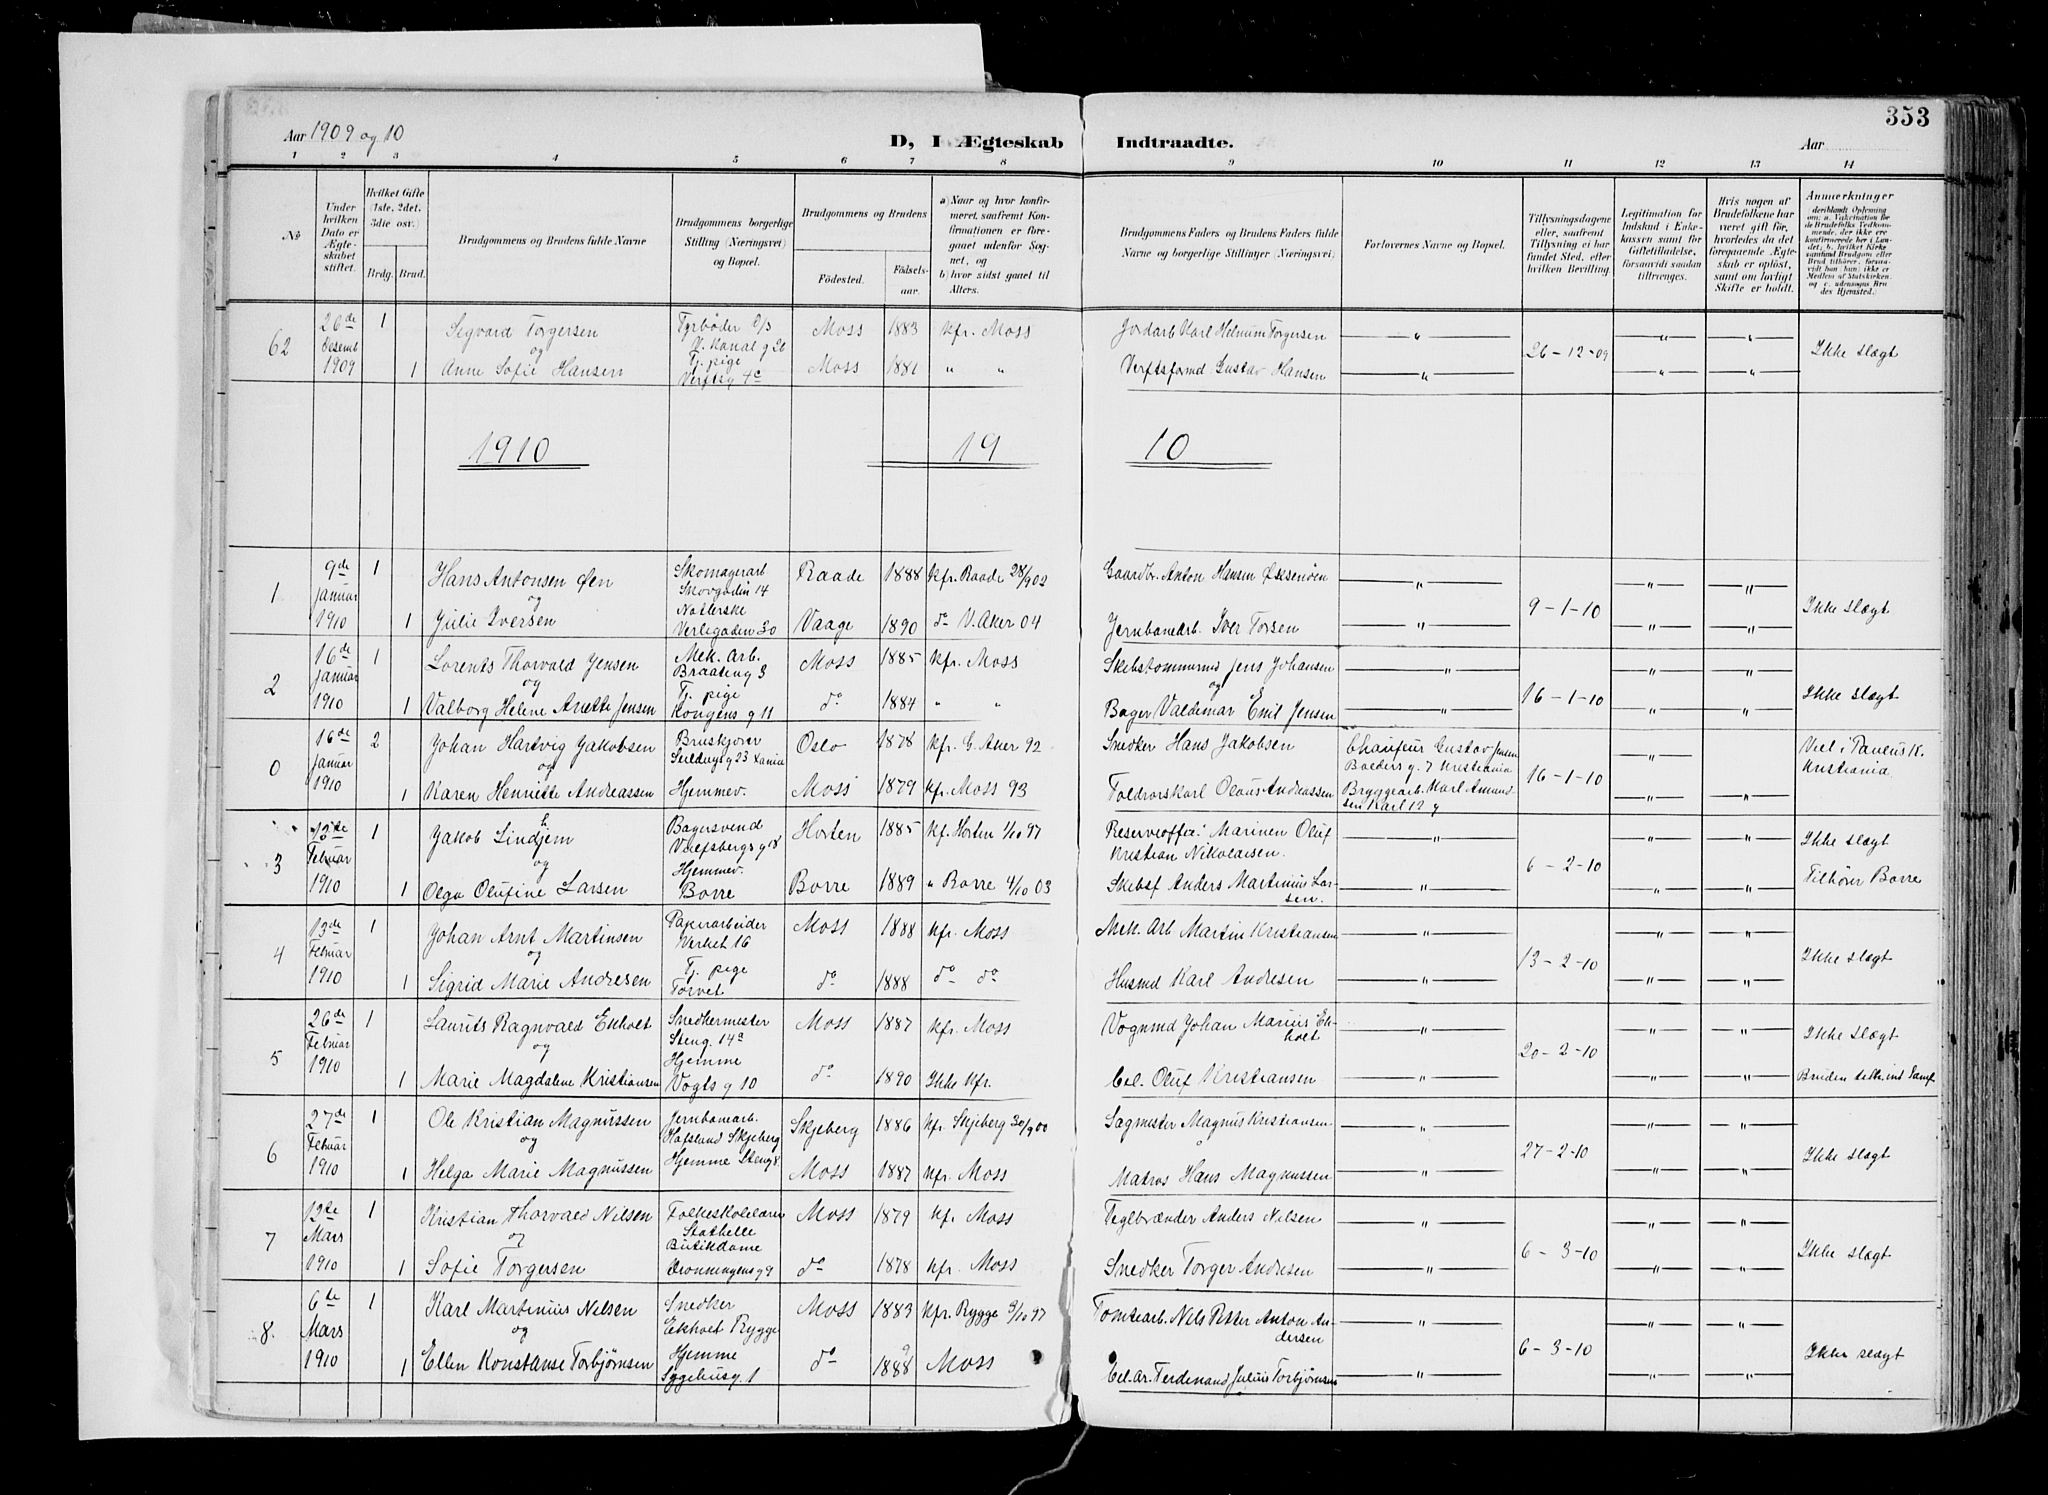 353
Aar 1909 og 10
D, I Ægteskab
Indtraadte.
Aar
1 2 3 4 5 6 7 8 9 10 11 12 13 14
No
Under hvilken Dato er Ægteskabet stiftet.
Hvilket Gifte (1ste, 2det, 3die osv.)
Brdg. Brud.
Brudgommens og Brudens fulde Navne
Brudgommens borgerlige Stilling (Næringsvei) og Bopæl.
Brudgommens og Brudens
Fødested. Fødselsaar.
a) Naar og hvor konfirmeret, saafremt Konfirmationen er foregaaet udenfor Sognet, og
b) hvor sidst gaaet til Alters.
Brudgommens Faders og Brudens Faders fulde Navne og borgerlige Stillinger (Næringsvei)
Forlovernes Navne og Bopæl.
Tillysningsdagene eller, saafremt Tillysning ei har fundet Sted, efter hvilken Bevilling.
Legitimation for Indskud i Enkekassen samt for Giftetilladelse, forsaavidt saadan tiltrænges.
Hvis nogen af Brudefolkene har været gift før, hvorledes da det foregaaende Ægteskab er opløst, samt om lovligt Skifte er holdt.
Anmerkninger
62 26de Desemb 1909 1 Sigvard Torgersen Fyrbøder Moss 1883 kfr. Moss Jordarb Karl Helmum Torgersen " 26-12-09 " " Ikke slægt
og V. Kanal g 26
1 Anne Sofie Hansen Tj. pige Verftsg 4c Moss 1881 " " Verftsformd Gustav Hansen " " "
1910 19 10
1 9de Januar 1910 1 Hans Antonsen Øen Skomagerarb Skovgaden 14 Raade 1888 kfr. Raade 28/9 02 Gaardbr. Anton Hansen " 9-1-10 " " Ikke slægt
og
1 Julie Iversen Verligaden 30 Vaage 1890 do V. Aker 04 Jernbanearb. Iver Torsen " " "
2 16de Januar 1910 1 Lorents Thorvald Jensen Mek. Arb. Braateng 3 Moss 1885 kfr. Moss Jens Johansen " 16-1-10 " " Ikke slægt
og
1 Valborg Helene Anette Jensen Tj. pige Kongens g 11 do 1884 " " Bager Valdemar Emil Jensen " " "
0 16de Januar 1910 2 Johan Hartvig Jakobsen Bruskjører Oslo 1878 kfr. G. Aker 92 Snedker Hans Jakobsen Chauffeur Gustav Jensen 16-1-10 " Viel i Paulus K. Kristiania
og
1 Karen Henriette Andreassen Hjemmev. Moss 1879 kfr. Moss 93 Toldrorskarl Olaus Andreassen Bryggearb. Karl Amundsen " "
3 12te Februar 1910 1 Jakob Lindjem Bagersvend Horten 1885 kf. Horten 1/10 97 Marinen Oluf Kristian Nikolaisen. " 6-2-10 " " Ikke slægt
og
1 Olga Olufine Larsen Hjemmev. Borre Borre 1889 " Borre 4/10 03 Skibsf Anders Martinius Larsen. " " " Tilhører Borre
4 13de Februar 1910 1 Johan Arnt Martinsen Papirarbeider Verket 16 Moss 1888 kfr. Moss Mek. Arb Martin Kristiansen " 13-2-10 " " Ikke slægt
og
1 Sigrid Marie Andresen Tj. pige Torvet do 1888 do do Husmd Karl Andresen " " "
5 26de Februar 1910 1 Laurits Ragnvald Ekholt Snedkermester Steng. 14a Moss 1887 kfr. Moss Vognmd Johan Marius Ekholt " 20-2-10 " " Ikke slægt
og
1 Marie Magdalene Kristiansen Hjemme Vogts g 10 do 1890 Ikke kfr. Oluf Kristiansen " " "
6 27de Februar 1910 1 Ole Kristian Magnussen Jernbanearb. Hafslund Skjeberg Skjeberg 1886 kfr. Skjeberg 30/9 00 Sagmester Magnus Kristiansen " 27-2-10 " " Ikke slægt
og
1 Helga Marie Magnussen Hjemme Steng 8 Moss 1887 kfr. Moss Matros Hans Magnussen " " "
7 12te Mars 1910 1 Kristian Thorvald Nilsen Folkeskolelærer Stathelle Moss 1879 kf. Moss Teglbrænder Anders Nilsen " 6-3-10 " " Ikke slægt
og
1 Sofie Torgersen Butikdame Dronningens g 9 do 1878 kfr. Moss Snedker Torger Andresen " " "
8. 6te Mars 1910 1 Karl Martinius Nilsen Snedker Ekholt Rygge Moss 1883 kfr. Rygge 3/10 97 Tomtearb. Nils Petter Anton Andersen " 6-3-10 " " Ikke slægt
og
1 Ellen Konstanse Torbjørnsen Hjemme Sygehusg. 1 do 1888 Moss Cel. ar. Ferdinand Julius Torbjørnsen " " "